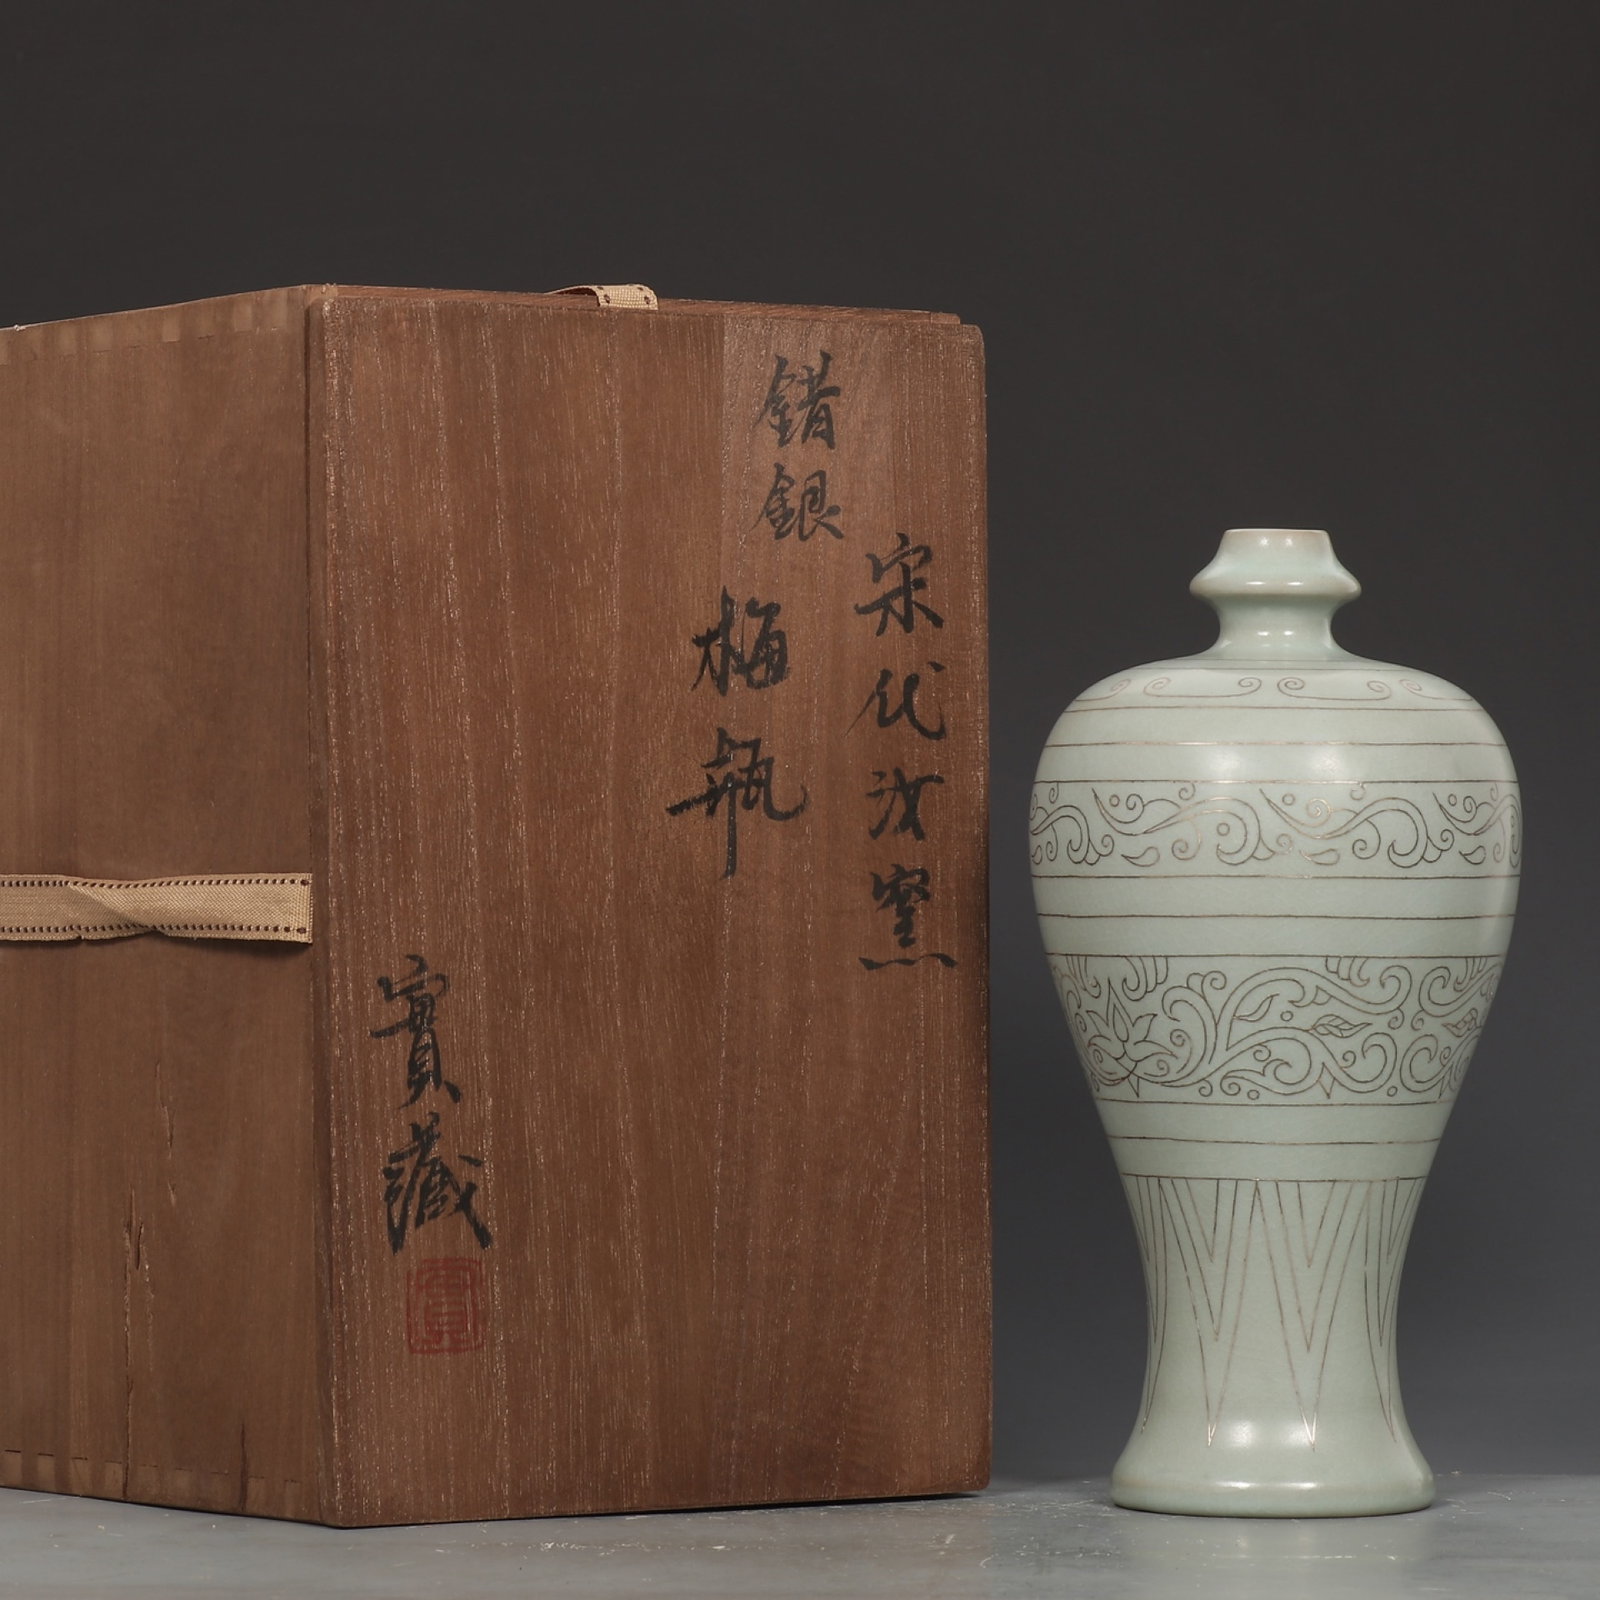 宋代汝窯
錯銀
梅瓶
寶藏